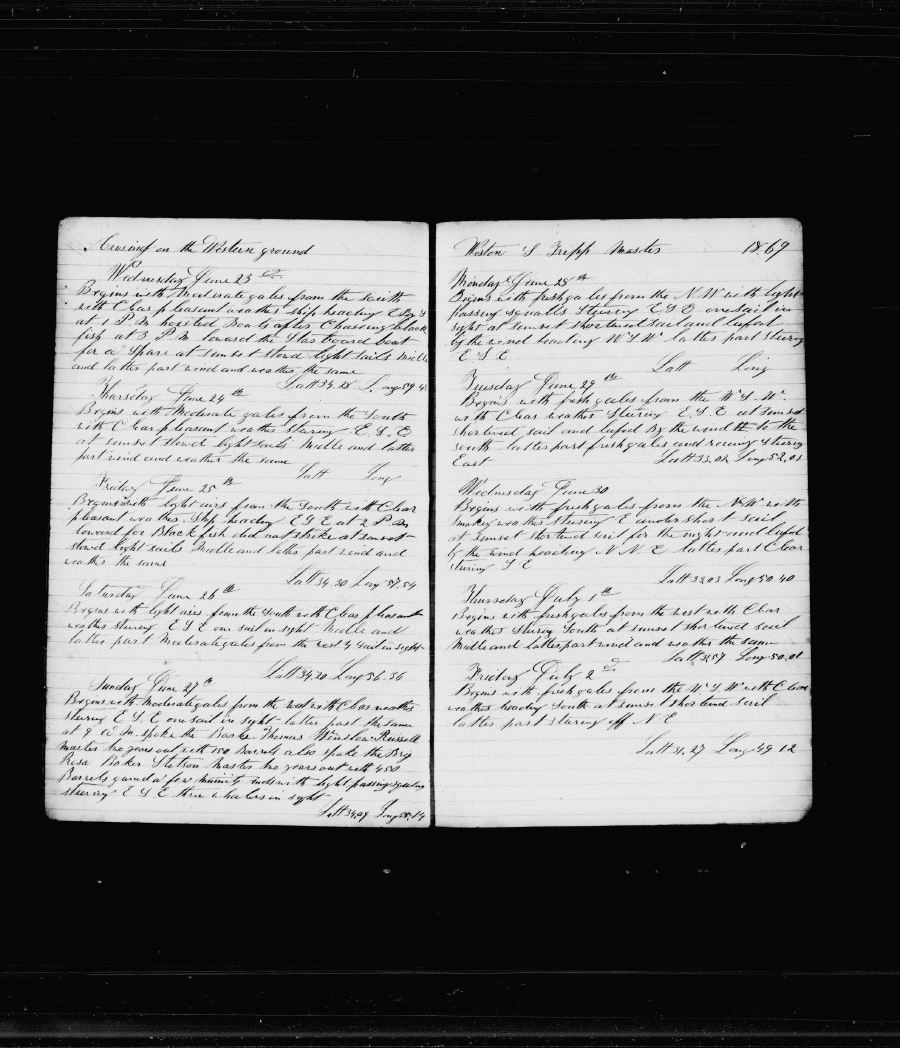 Cruising on the Western ground
Wednesday June 23
Begins with Moderate gales from the south
with Clear pleasant weather ship heading E
at 1 P M hoisted Boats after Chasing black
fish at 3 P M lowerd the Starboard boat
for a Spare at sunset stowd light sails Midle
and latter part wind and weather the same
Latt 34.18 Long 59.4
Thursday June 24 th
Begins with Moderate gales from the South
with Clear pleasant weather sturing E.S.E.
at sunset stowd light sails Midle and latter
part wind and weather the same
Latt Long
Friday June 25 th
Begins with light airs from the South with Clear
pleasant weather Ship heading E S E at 2 P M
lowerd for Black fish did not strike at sunset
stowd light sails Midle and latter part wind and
weather the same
Latt 34.30 Long 57.54
Saturday June 26 th
Begins with light airs from the South with Clear pleasant
weather sturing E S E one sail in sight Midle and
latter part Moderate gales from the west 4 Sail in sight
Latt 34.20 Long 56.56
Sunday June 27 th
Begins with Moderate gales from the west with Clear weather
sturing E S. E one sail in sight latter part the same
at 9 a M. spoke the Barke Thomas Winslow Russell
Master two years out with 150 Barrels also spoke the Brig
Rosa Baker Stetson Master two years out with 450
Barrels gamed a few ends with light passing squalls
sturing E S E three whalers in sight
Latt 34.09 Long 55.14
Weston S Tripp Master 1869
Monday June 28 th
Begins with fresh gales from the N. W with light
passing squalls sturing E S E one sail in
sight at sunset shortened sail and lufed
by the wind heading W S W latter part sturing
E S E
Latt Long
Tuesday June 29 th
Begins with fresh gales from the W. S. W.
with Clear weather sturing E. S. E at sunset
shortened sail and lufed By the wind to the
south latter part fresh gales and sturing
East Latt 33.02 Long 52.03
Wednesday June 30
Begins with fresh gales from the N.W with
smokey weather sturing E under short sail
at sunset shortened sail for the night and lufed
by the wind heading N N. E latter part Clear
sturing S E
Latt 32.03 Long 50.40
Thursday July 1 th
Begins with fresh gales from the west with Clear
weather sturing South at sunset shortened sail
Midle and latter part wind and weather the same
Latt 31.57 Long 50.01
Friday July 2
Begins with fresh gales from the W S W with Clear
weather heading South at sunset shortened sail
latter part sturing off N E
Latt 31.27 Long 49 12